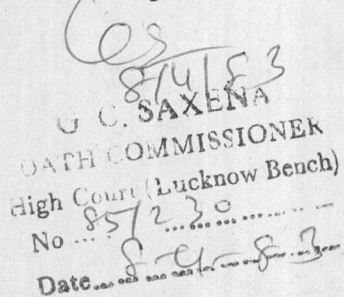 8/4/83
C. SAXENA
OATH COMMISSIONER
High Court (Lucknow Bench)
No ... 85/230 ............
Date.... 8-4-83...